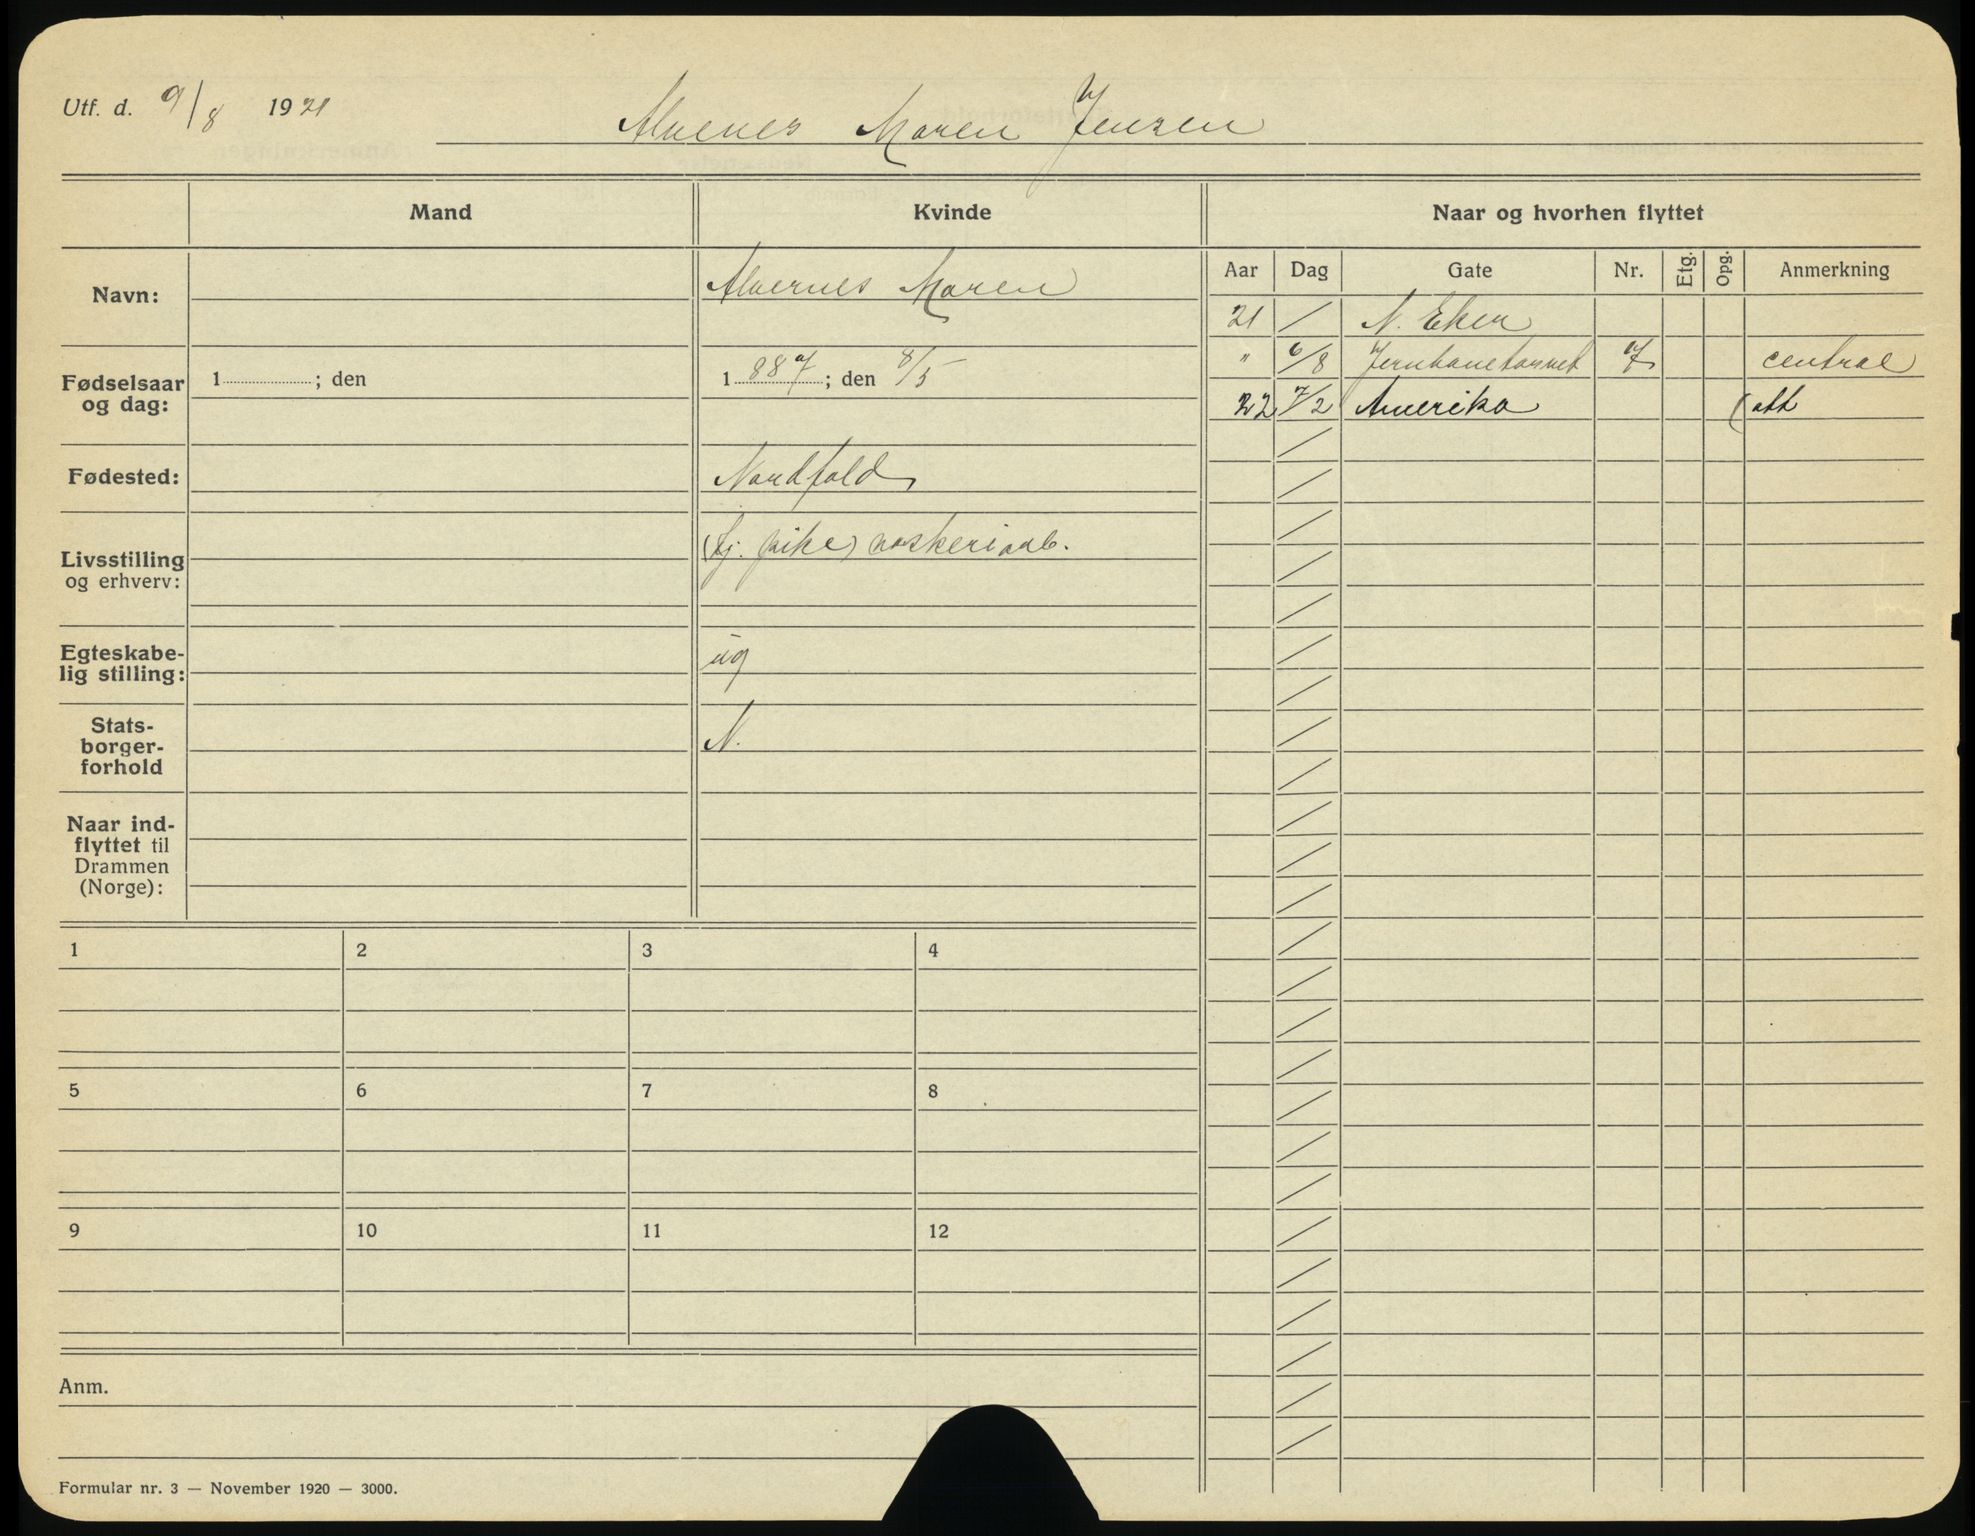 Utf. d. 9/8 1921
Alvenes Maren Jensen
Mand
Kvinde
Naar og hvorhen flyttet
Navn:
Alvernes Maren
Fødselsaar
og dag:
1 ; den
1 887 ; den 8/5
Fødested:
Nordfold
Livsstilling
og erhverv:
(tj. pike) vaskeriarb.
Egteskabe-
lig stilling:
ug
Stats-
borger-
forhold
N.
Naar ind-
flyttet til
Drammen
(Norge):
Aar Dag Gate Nr. Etg. Opg. Anmerkning
21 / N. Eker
" 6/8 Jernbanetorvet 7 central
22 7/2 Amerika (att
1 2 3 4
5 6 7 8
9 10 11 12
Anm.
Formular nr. 3 — November 1920 — 3000.